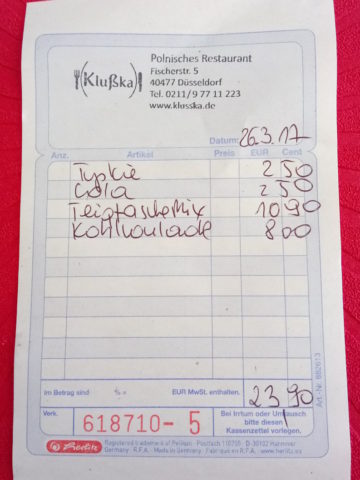 (Klußka)
Polnisches Restaurant
Fischerstr. 5
40477 Düsseldorf
Tel. 0211/9 77 11 223
www.klusska.de
Datum: 26.3.17
Anz. Artikel Preis EUR Cent
Tyskie 2 50
Cola 2 50
Teigtasche Mix 10 90
Kohlroulade 8 00
Im Betrag sind % = EUR MwSt. enthalten. 23,90
Verk. 618710- 5
Bei Irrtum oder Umtausch
bitte diesen
Kassenzettel vorlegen.
Art.-Nr. 882613
Herlitz
Registered trademark of Pelikan · Postfach 110755 · D-30102 Hannover
Germany · R.F.A. · Made in Germany · Fabriqué en R.F.A. · www.herlitz.eu